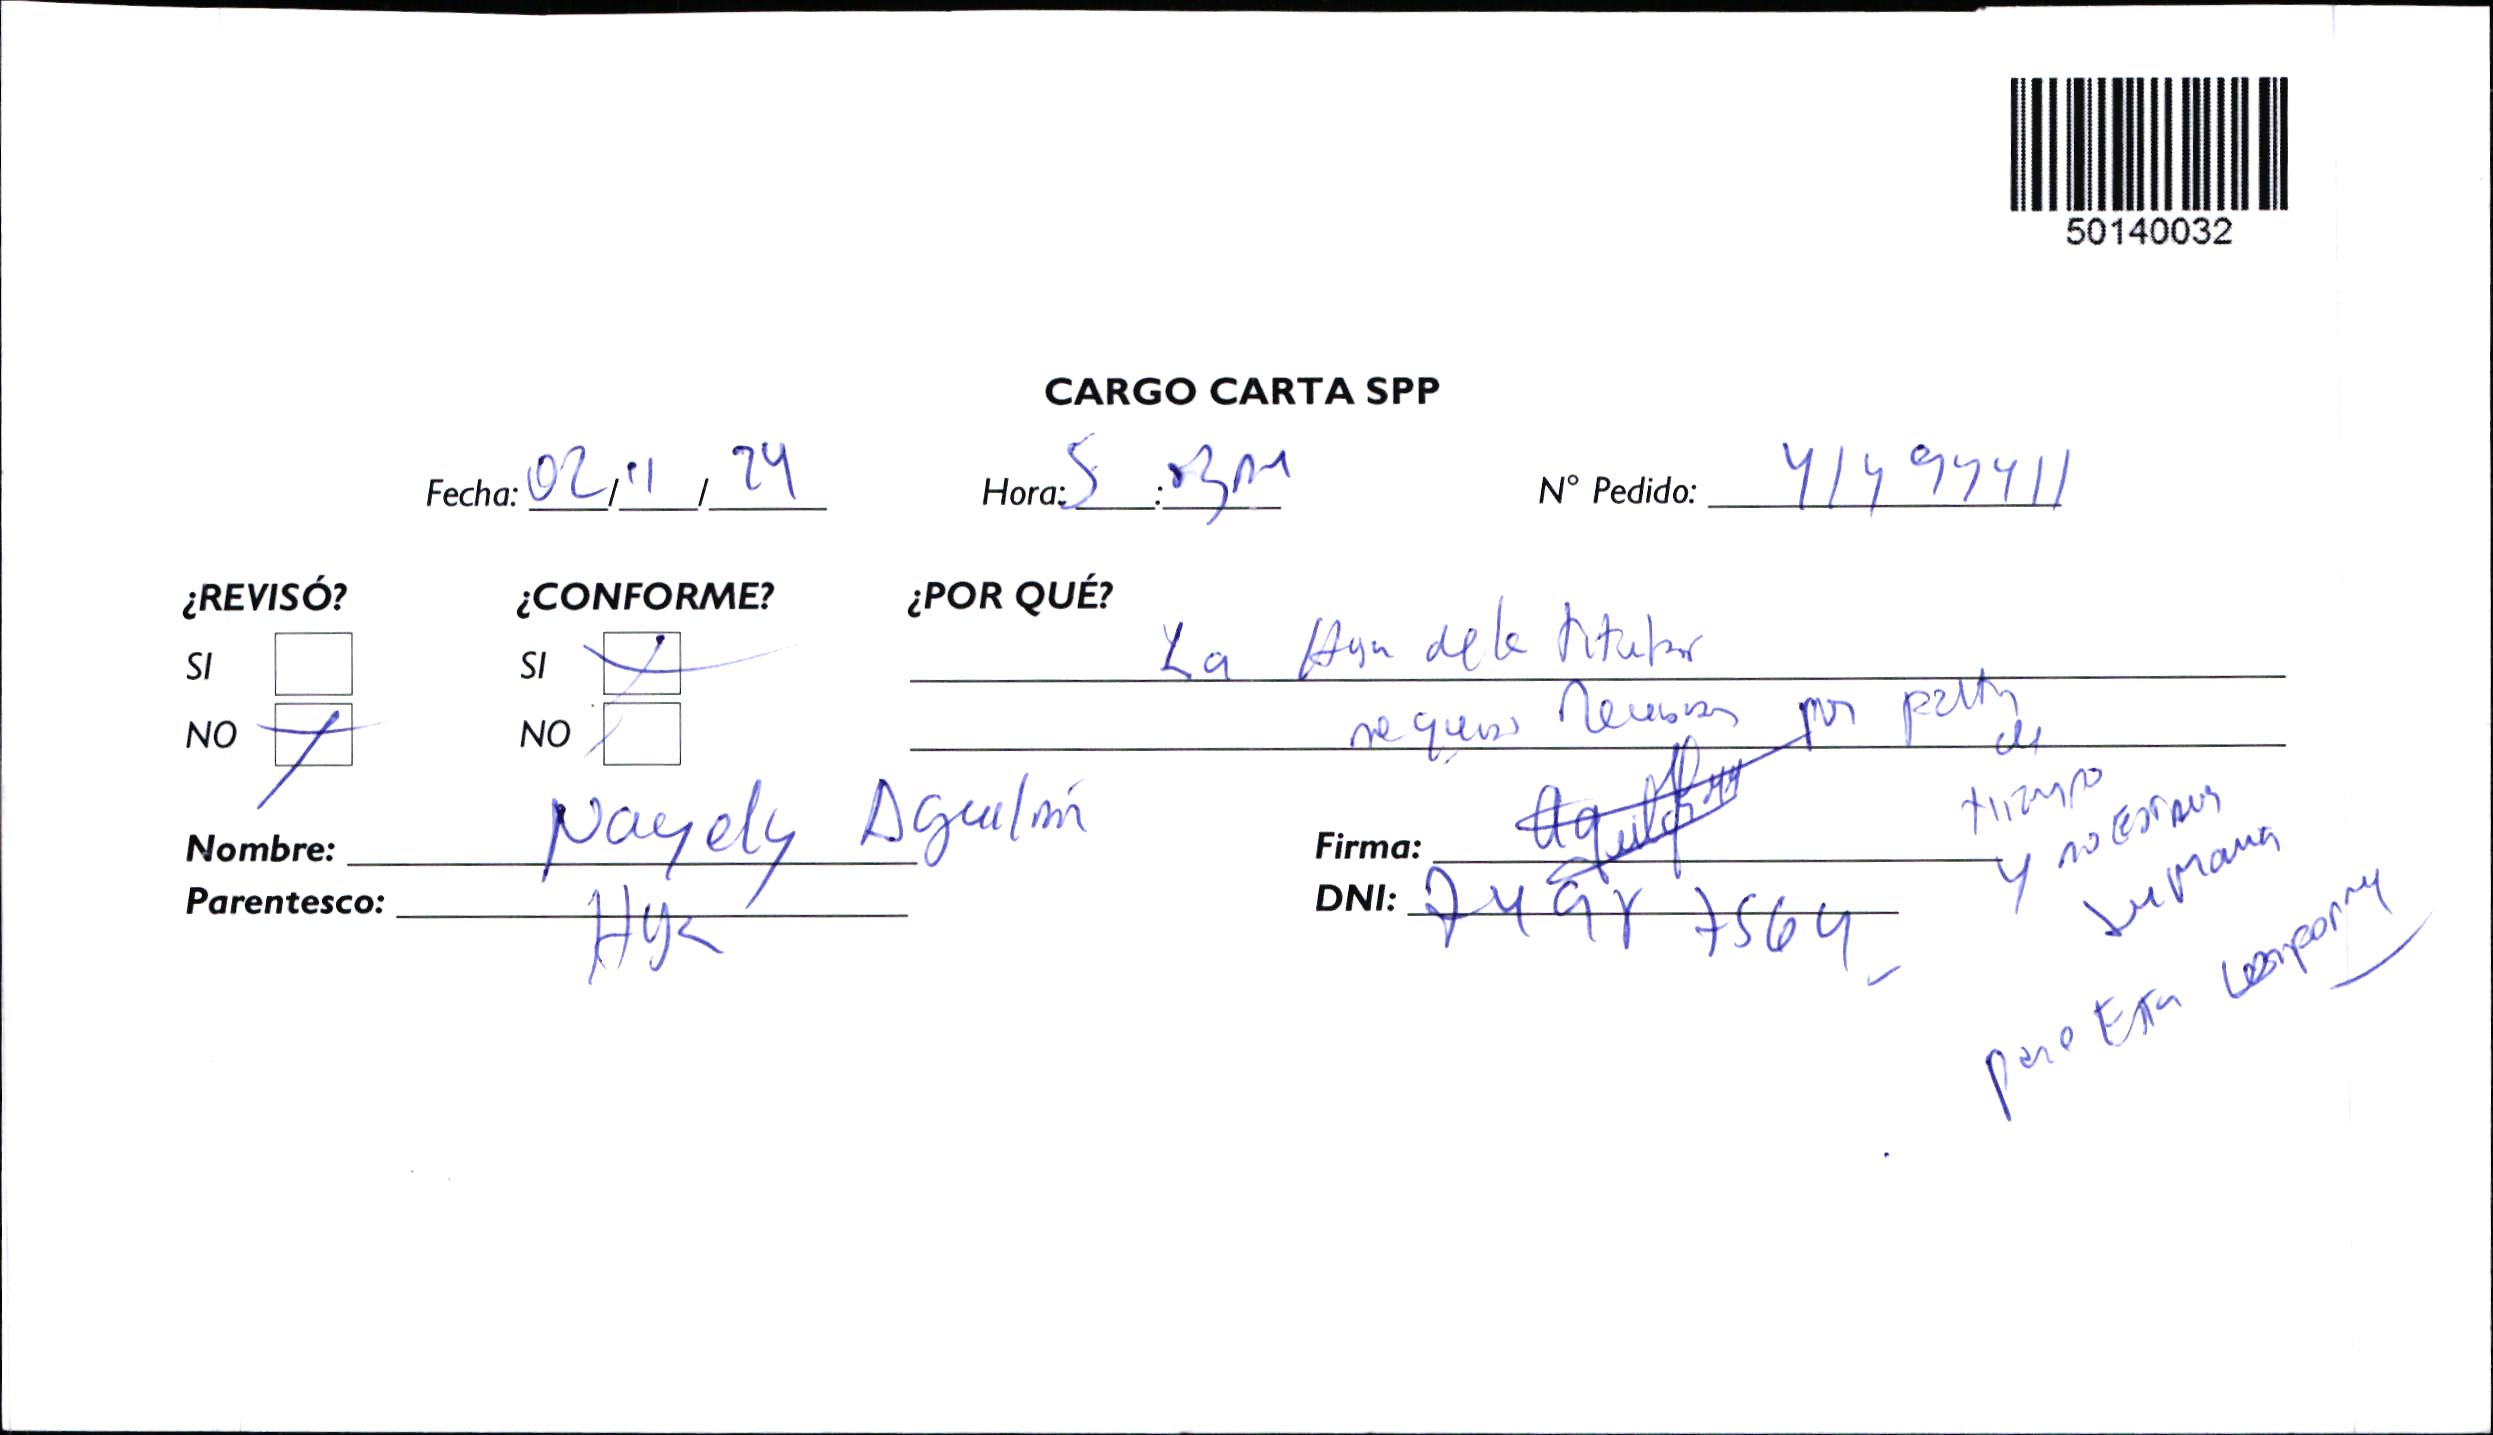 50140032
CARGO CARTA SPP
Fecha: 02/11/24 Hora: 5:03pm N° Pedido: 414944411
¿REVISÓ? ¿CONFORME? ¿POR QUÉ?
SI SI La Hija de la titular
NO NO no quiso Revisar por falta
de
tiempo
y no
su mama
pero Esta conforme
Nombre: Nayely Aguilar Firma: Aguilar
Parentesco: Hija DNI: 7564